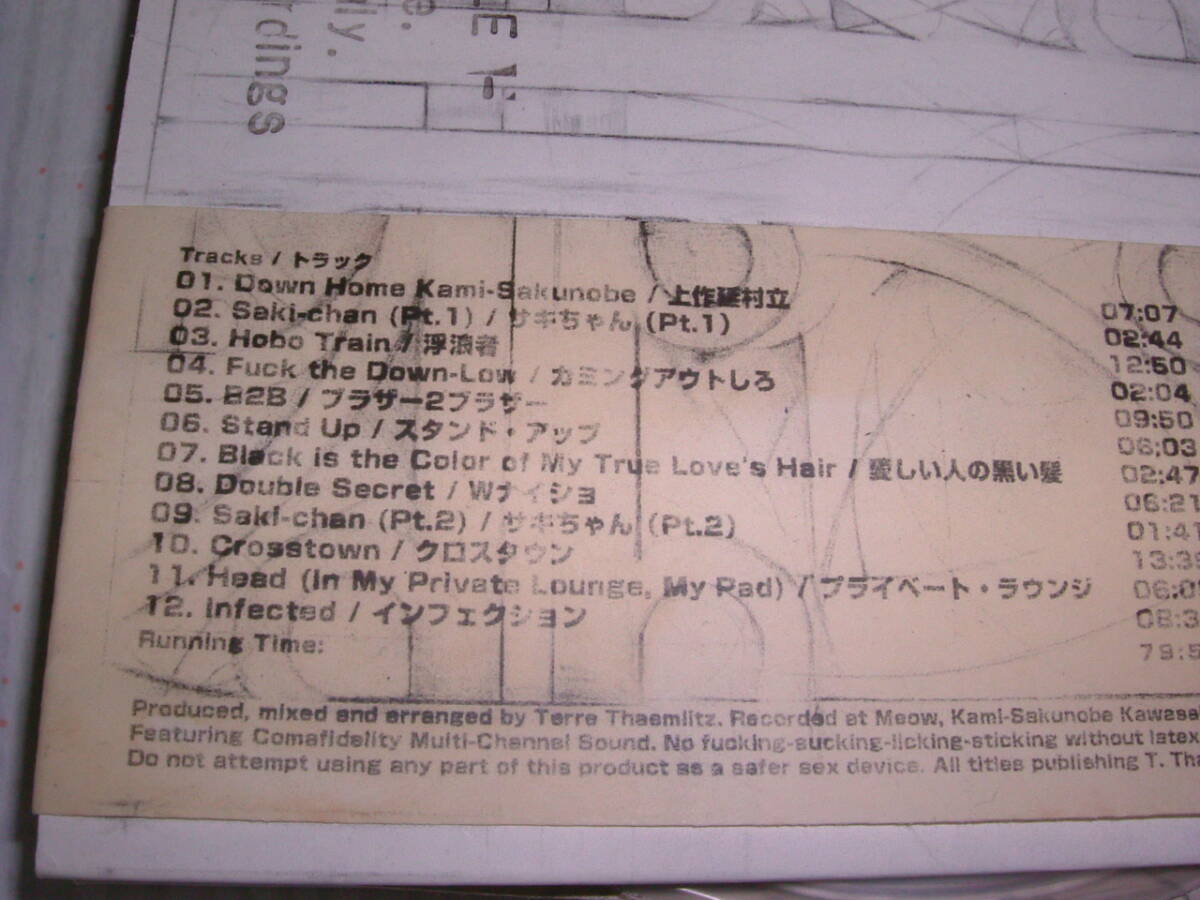 E !-
e.
ly.
dings
Tracks / トラック
01. Down Home Kami-Sakunobe / 上作延村立 07:07
02. Saki-chan (Pt.1) / サキちゃん (Pt.1) 02:44
03. Hobo Train / 浮浪者 12:50
04. Fuck the Down-Low / カミングアウトしろ 02:04
05. B2B / ブラザー2ブラザー 09:50
06. Stand Up / スタンド・アップ 06:03
07. Black is the Color of My True Love's Hair / 愛しい人の黒い髪 02:47
08. Double Secret / Wナイショ 06:21
09. Saki-chan (Pt.2) / サキちゃん (Pt.2) 01:41
10. Crosstown / クロスタウン 13:39
11. Head (In My Private Lounge, My Pad) / プライベート・ラウンジ 06:0
12. Infected / インフェクション 08:3
Running Time: 79:5
Produced, mixed and arranged by Terre Thaemlitz. Recorded at Meow, Kami-Sakunobe Kawasa
Featuring Comafidelity Multi-Channel Sound. No fucking-sucking-licking-sticking without latex
Do not attempt using any part of this product as a safer sex device. All titles publishing T. Tha